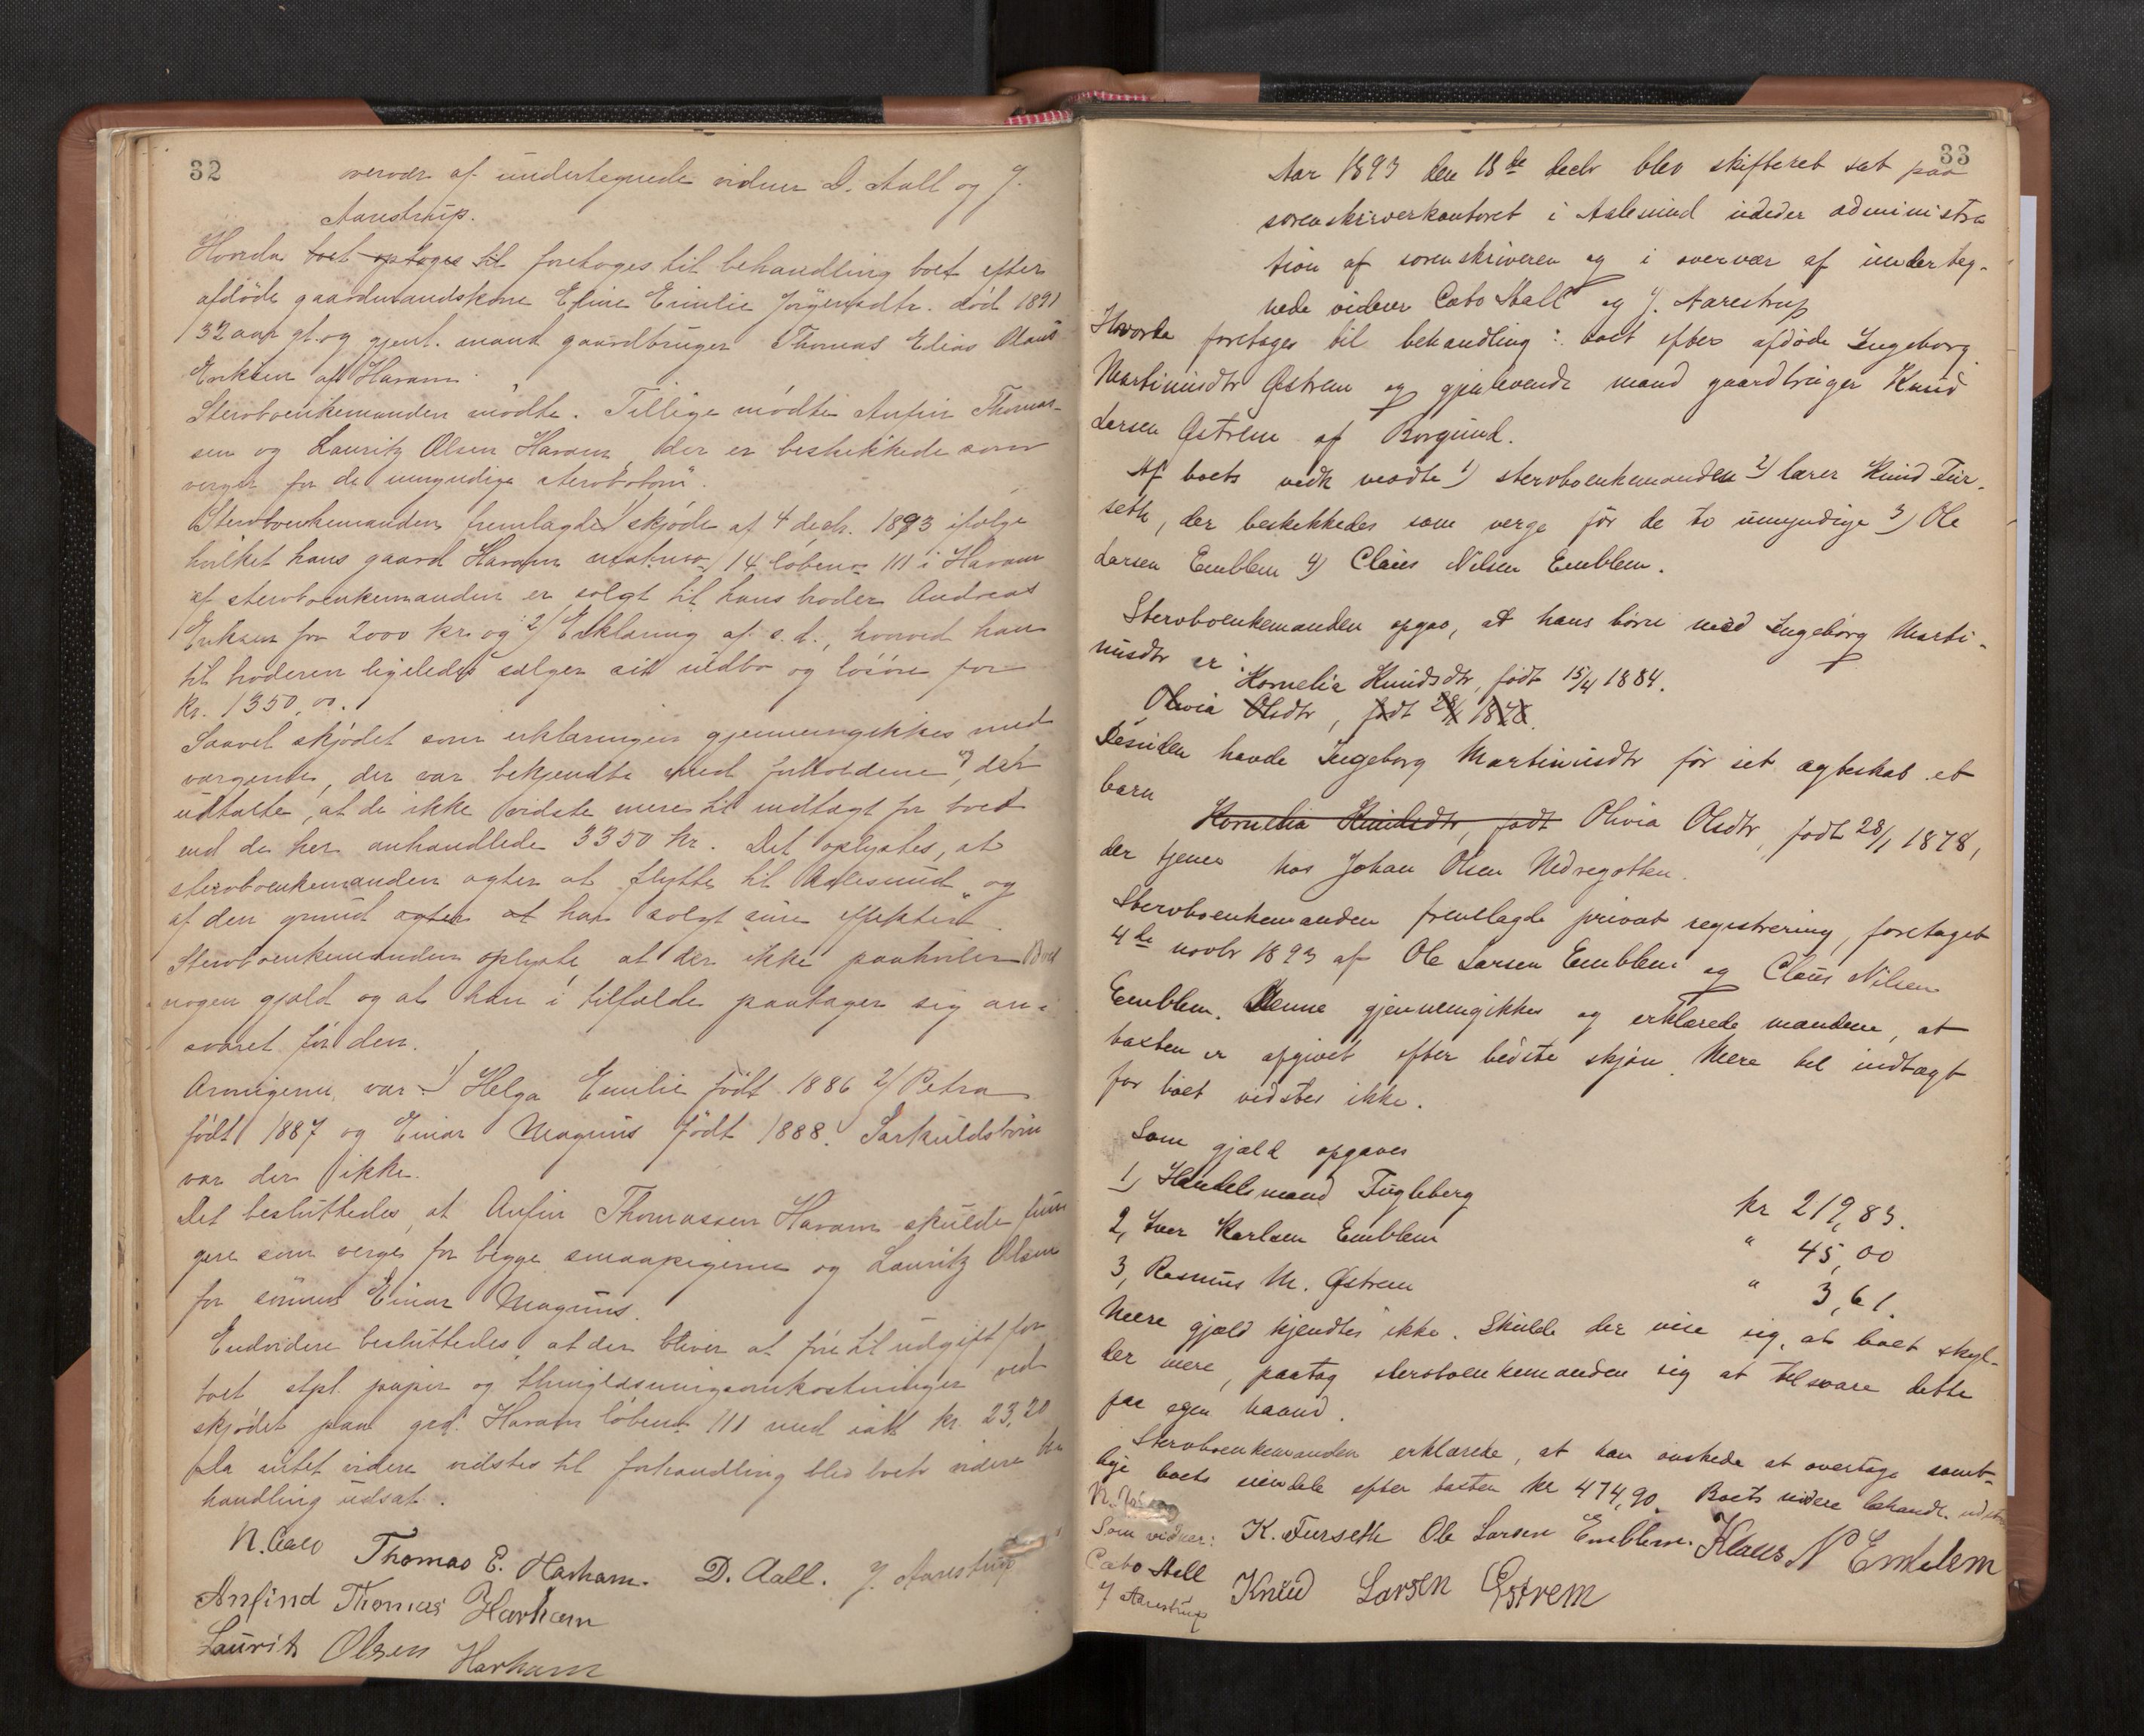 32
overvær af undertegnede vidner D. Aall og J.
Aarestrup.
Hvorda boet optoges til foretoges til behandling boet efter
afdöde gaardmandskone Eline Emilie Jörgensdtr. död 1891
32 aar gl. og gjenl. mand gaardbruger Thomas Elias Olaus
Eriksen af Haram.
Stervboenkemanden mödte. Tillige mödte Anfin Thomas-
sen og Lauritz Olsen Haram der er beskikkede som
verger for de umyndige stervbobörn.
Stervboenkemanden fremlagde 1) skjöde af 4 decbr. 1893 ifölge
hvilket hans gaard Haram matr.no. 14 löbeno. 111 i Haram
af stervboenkemanden er solgt til hans broder Andreas
Eriksen for 2000 kr. og 2) Erklæring af s. d., hvorved han
til broderen ligeledes sælger sit indbo og lösöre for
kr. 1350,00.
Saavel skjödet som erklæringen gjennemgikkes med
vergerne, der var bekjendte med forholdene og, der
udtalte, at de ikke vidste mere til indtægt for boet
end de her anhandlede 3350 kr. Det oplystes, at
stervboenkemanden agter at flytte til Aalesund og
af den grund agter at har solgt sine effekter.
Stervboenkemanden oplyste at der ikke paahviler Boet
nogen gjæld og at han i tilfælde paatager sig an-
svaret for den.
Arvingerne var 1) Helga Emilie födt 1886 2) Petra
födt 1887 og Einar Magnus födt 1888. Særkuldsbörn
var der ikke.
Det besluttedes, at Anfin Thomassen Haram skulde fun
gere som verge for begge smaapigerne og Lauritz Olsen
for sönnen Einar Magnus.
Endvidere besluttedes at der bliver at före til udgift for
boet stpl. papir og thinglæsningsomkostninger ved
skjödet paa grd. Haram löbeno. 111 med ialt kr. 23,20
Da intet videre vidstes til forhandling blev boets videre be
handling udsat.
N. Aall Thomas E. Harham. D. Aall. J. Aarestrup
Anfind Thomas Harham
Laurits Olsen Harham
33
Aar 1893 den 18de decbr blev skifteret sat paa
sorenskriverkontoret i Aalesund under administra
tion af sorenskriveren og i overvær af underteg-
nede vidner Cato Aall og J. Aarestrup
Hvorda foretoges til behandling: boet efter afdöde Ingeborg
Martinusdtr Østrem og gjenlevende mand gaardbruger Knud
Larsen Østrem af Borgund.
Af boets vedk mödte 1) stervboenkemanden 2) lærer Knud Fur-
seth, der beskikkedes som verge for de to umyndige 3) Ole
Larsen Emblem 4) Claus Nilsen Emblem.
Stervboenkemanden opgav, at hans börn med Ingeborg Marti-
nusdtr er:
Kornelia Knudsdtr, födt 15/4 1884.
Olivia Olsdtr, födt 28/1 1878.
Desuden havde Ingeborg Martinusdtr för sit ægteskab et
barn
Kornelia Knudsdtr, födt Olivia Olsdtr, födt 28/1 1878,
der tjener hos Johan Olsen Nedregotten.
Stervboenkemanden fremlagde privat registrering, foretaget
4de novbr 1893 af Ole Larsen Emblem og Claus Nilsen
Emblem. Denne gjennemgikkes og erklærede mændene, at
taxten er afgivet efter bedste skjön. Mere til indtægt
for boet vidstes ikke.
Som gjæld opgaves
1, Handelsmand Fugleberg kr 219,83.
2, Iver Karlsen Emblem " 45,00
3, Rasmus M. Østrem " 3,61.
Mere gjæld kjendtes ikke. Skulde der vise sig, at boet skyl-
der mere, paatog stervboenkemanden sig at tilsvare dette
paa egen haand.
Stervboenkemanden erklærede, at han önskede at overtage samt-
lige boets eiendele efter taxten kr 474,90. Boets videre behandl. udsat
Som vidner: K. Furseth Ole Larsen Emblem. Klaus N Emblem
Cato Aall
J Aarestrup Knud Larsen Østrem